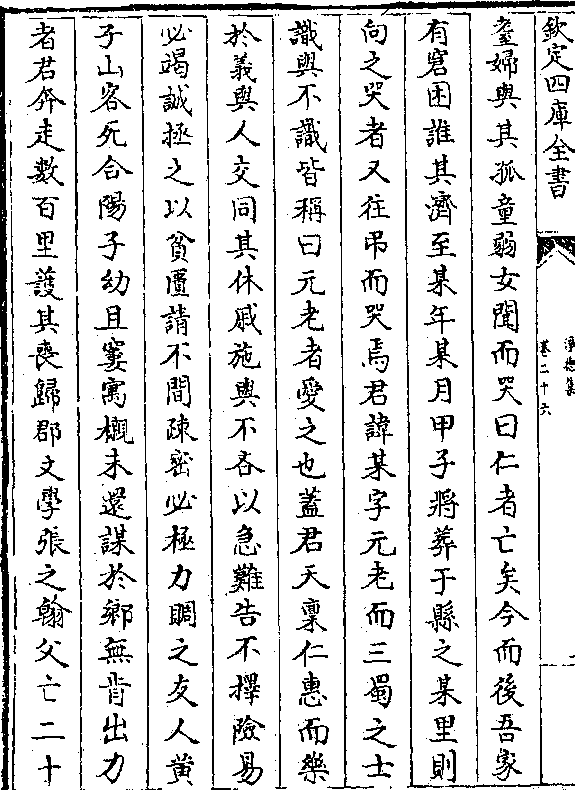 欽定四庫全書
淨德集
卷二十六
嫠婦與其孤童弱女聞而哭曰仁者亡矣今而後吾家
有窘困誰其濟至某年某月甲子將葬于縣之某里則
向之哭者又往弔而哭焉君諱某字元老而三蜀之士
識與不識皆稱曰元老者愛之也蓋君天稟仁惠而樂
於義與人交同其休戚施與不吝以急難告不擇險易
必竭誠拯之以貧匱請不間疎密必極力賙之友人黄
子山客死合陽子幼且窶寓櫬未還謀於鄉無肯出力
者君奔走數百里護其喪歸郡文學張之翰父亡二十